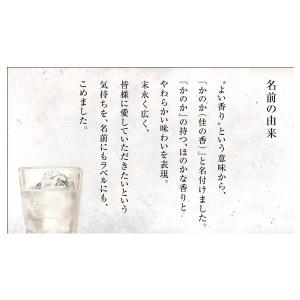 名前の由来
“よい香り”という意味から、
「かのか(佳の香)」と名付けました。
「かのか」の持つ、ほのかな香りと
やわらかい味わいを表現。
末永く広く、
皆様に愛していただきたいという
気持ちを、名前にもラベルにも、
こめました。